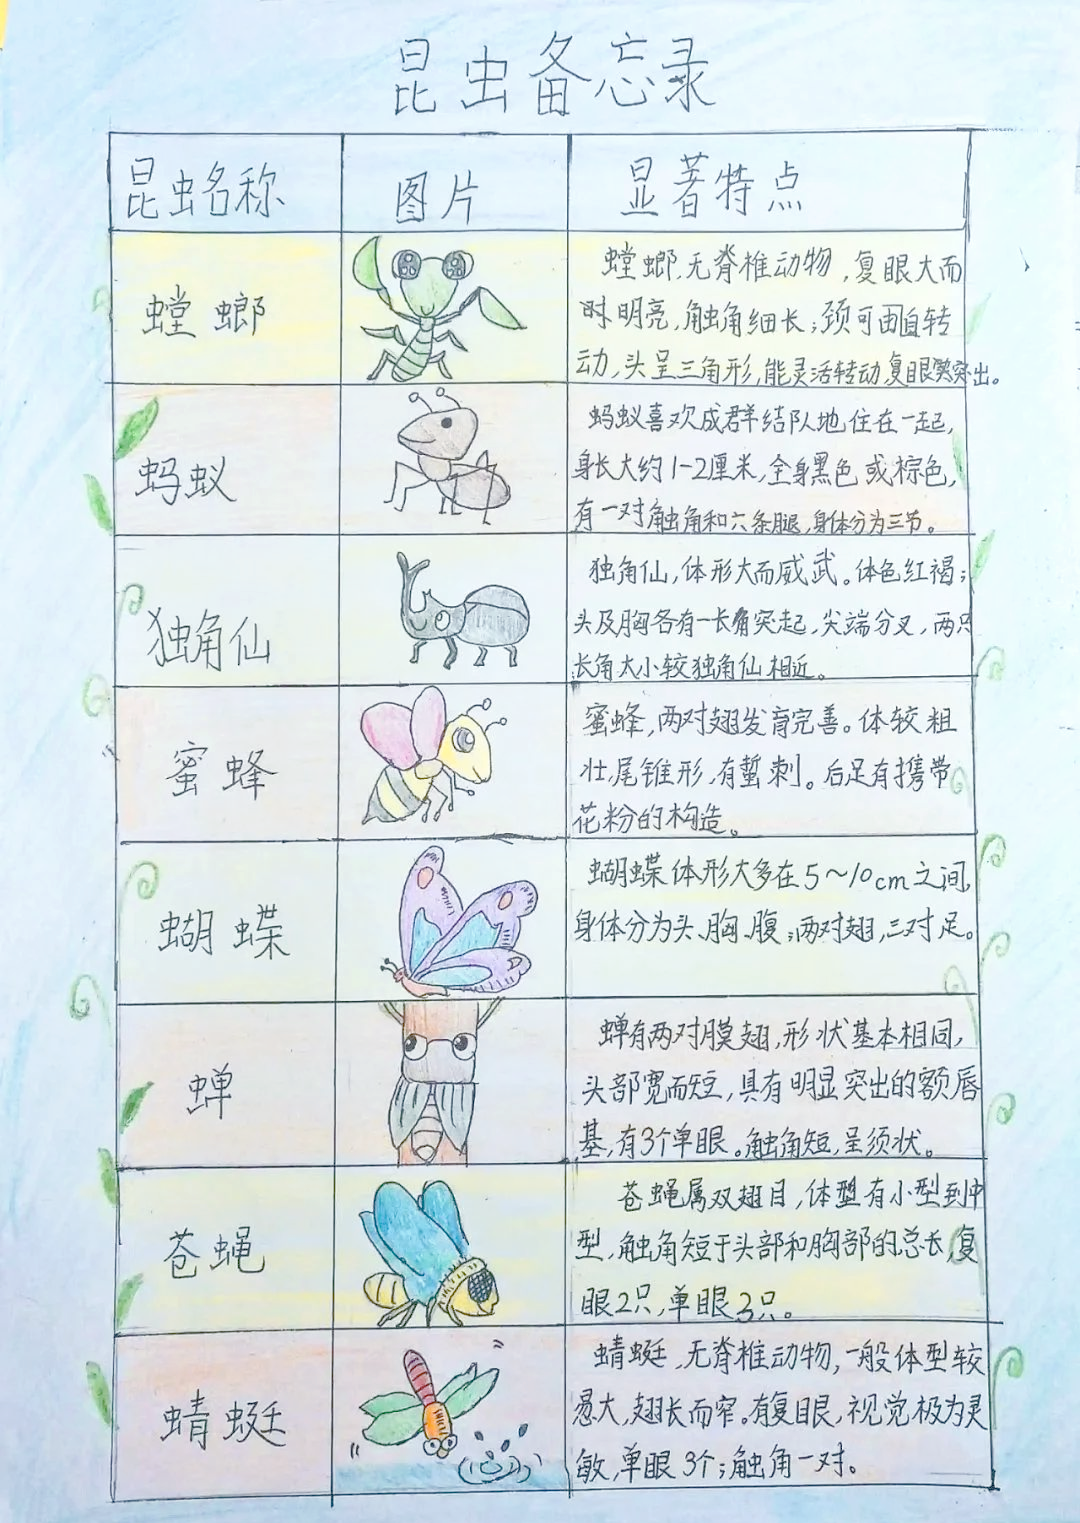 昆虫备忘录
昆虫名称 图片 显著特点
螳螂
螳螂,无脊椎动物,复眼大而
明亮,触角细长;颈可由自转
动,头呈三角形,能灵活转动,复眼突出。
蚂蚁
蚂蚁喜欢成群结队地住在一起,
身长大约1-2厘米,全身黑色或棕色,
有一对触角和六条腿,身体分为三节。
独角仙
独角仙,体形大而威武。体色红褐;
头及胸各有一长角突起,尖端分叉,两只
长角大小较独角仙相近。
蜜蜂
蜜蜂,两对翅发育完善。体较粗
壮,尾锥形,有蜇刺。后足有携带
花粉的构造。
蝴蝶
蝴蝶体形大多在5~10cm之间,
身体分为头、胸、腹;两对翅,三对足。
蝉
蝉有两对膜翅,形状基本相同,
头部宽而短,具有明显突出的额唇
基,有3个单眼。触角短,呈须状。
苍蝇
苍蝇属双翅目,体型有小型到中
型,触角短于头部和胸部的总长,复
眼2只,单眼3只。
蜻蜓
蜻蜓,无脊椎动物,一般体型较
大,翅长而窄。有复眼,视觉极为灵
敏,单眼3个;触角一对。